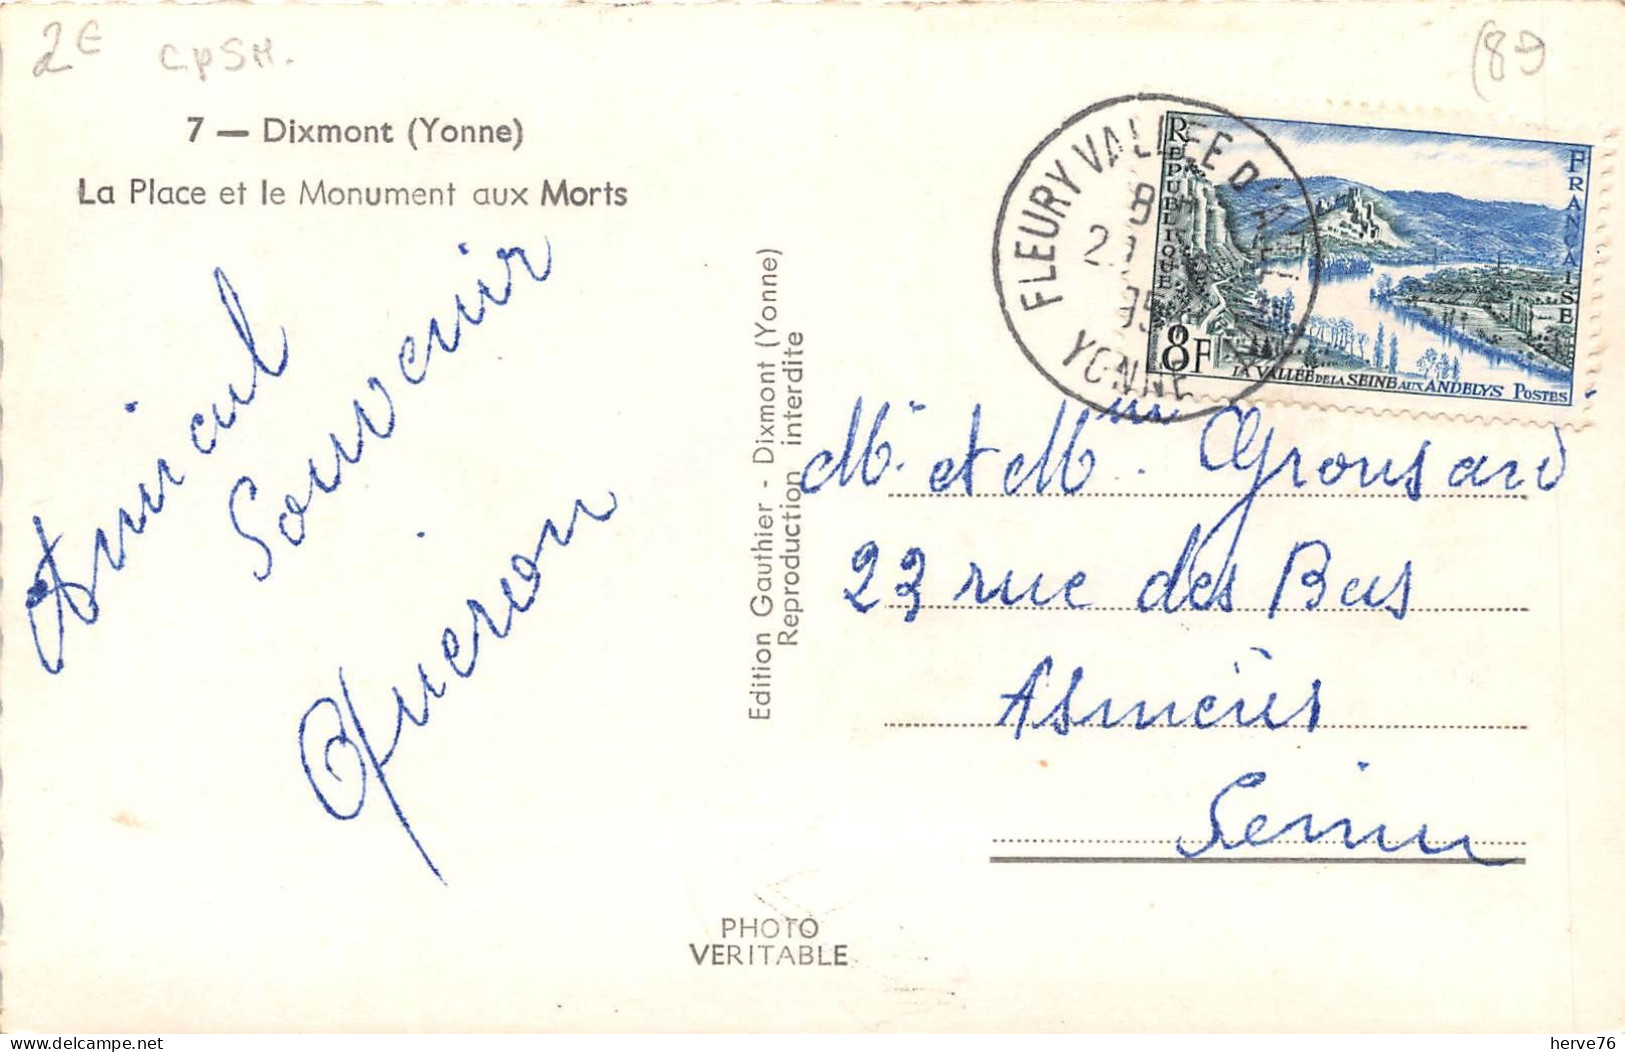 2€ CPSM.
(89
7 — Dixmont (Yonne)
La Place et le Monument aux Morts
Amical
Souvenir
Quieron
Edition Gauthier - Dixmont (Yonne)
Reproduction interdite
FLEURY VALLEE D'AILLANT
YONNE
REPUBLIQUE FRANCAISE
8F
LA VALLÉE DE LA SEINE AUX ANDELYS POSTES
Mr et Mme Grousard
23 rue des Bas
Asnières
Seine
PHOTO
VERITABLE
www.delcampe.net
herve76